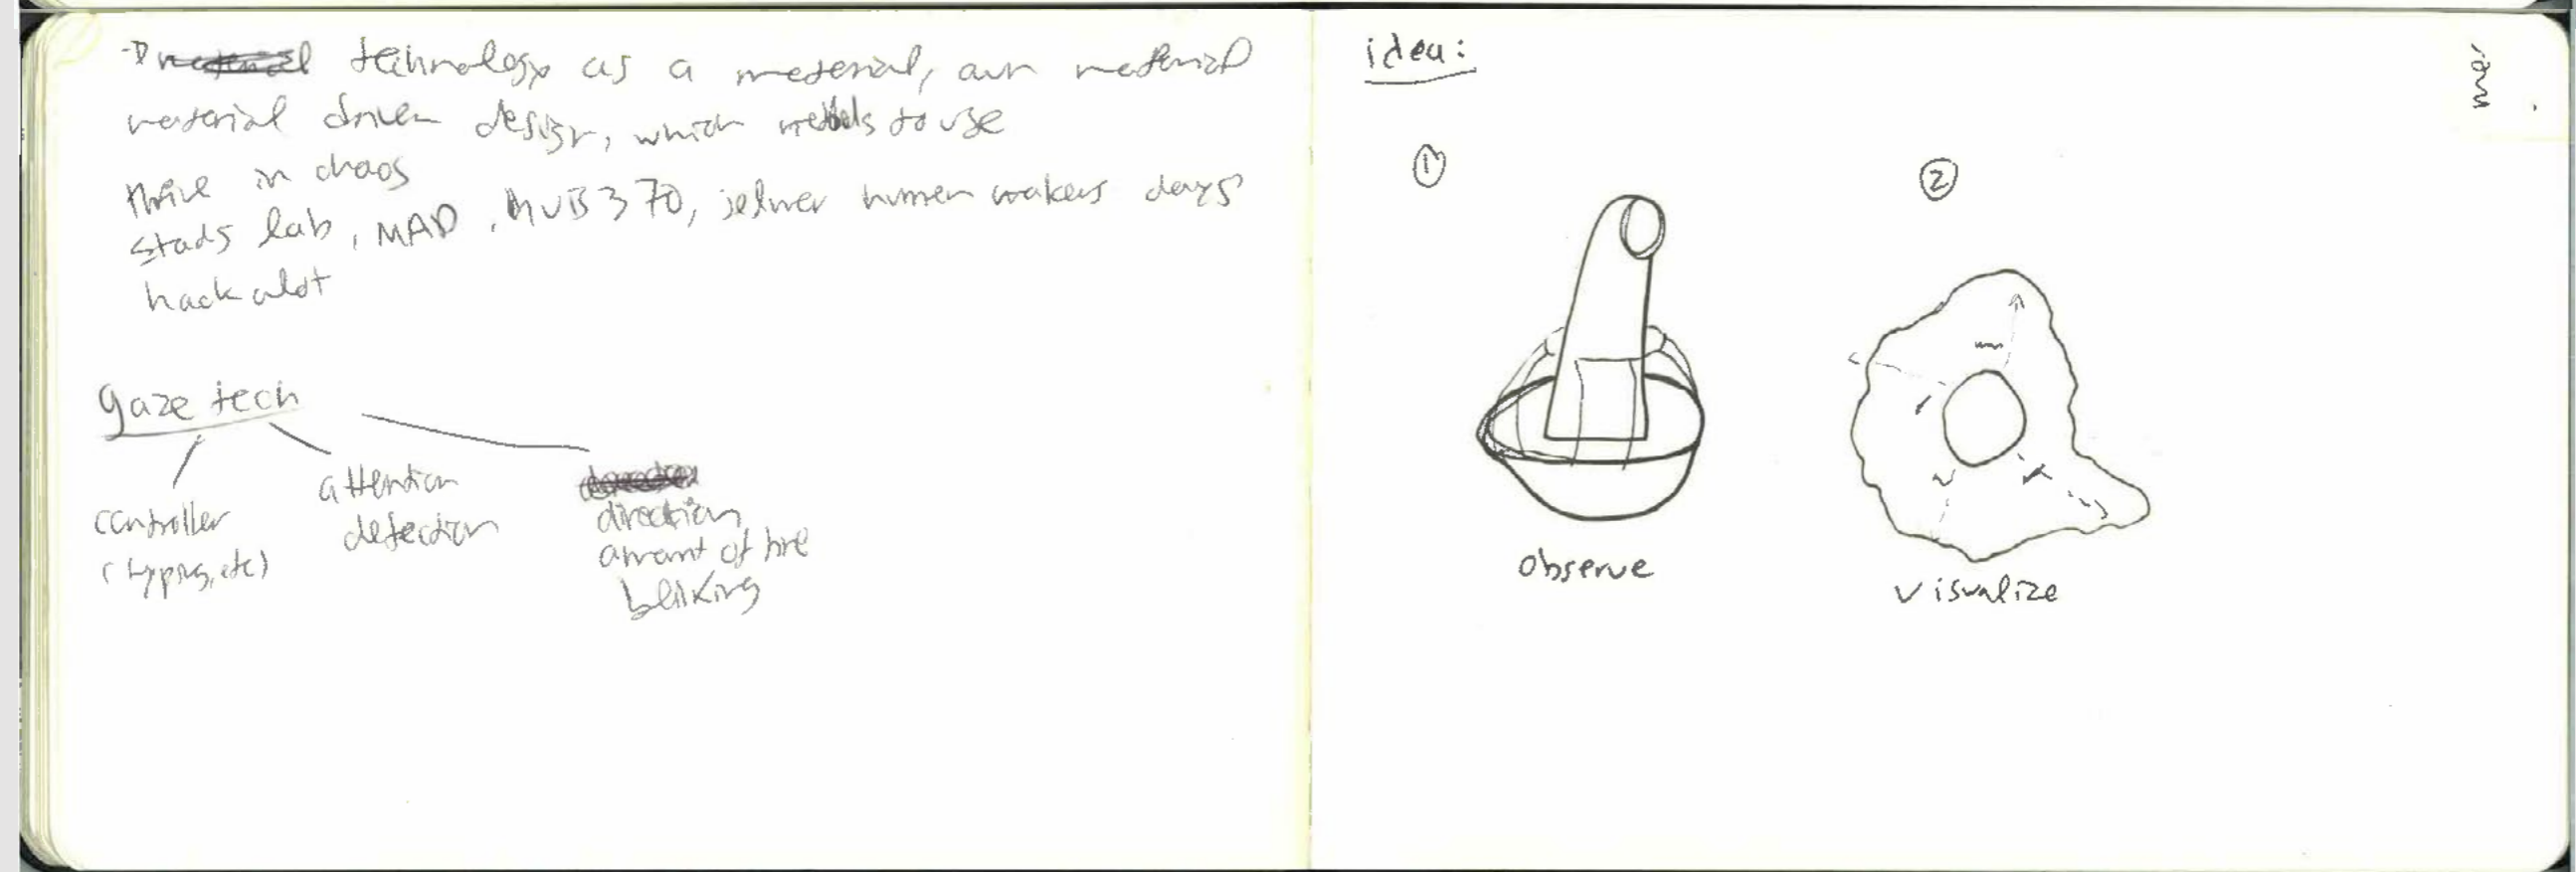 technology as a material, our material
material driven design, which to use
thrive in chaos
stads lab, MAD, HUB370, jelmer human makers days
hack alot
gaze tech
controller
(typing, etc)
attention
detection
direction
amount of time
blinking
idea:
1
observe
2
visualize